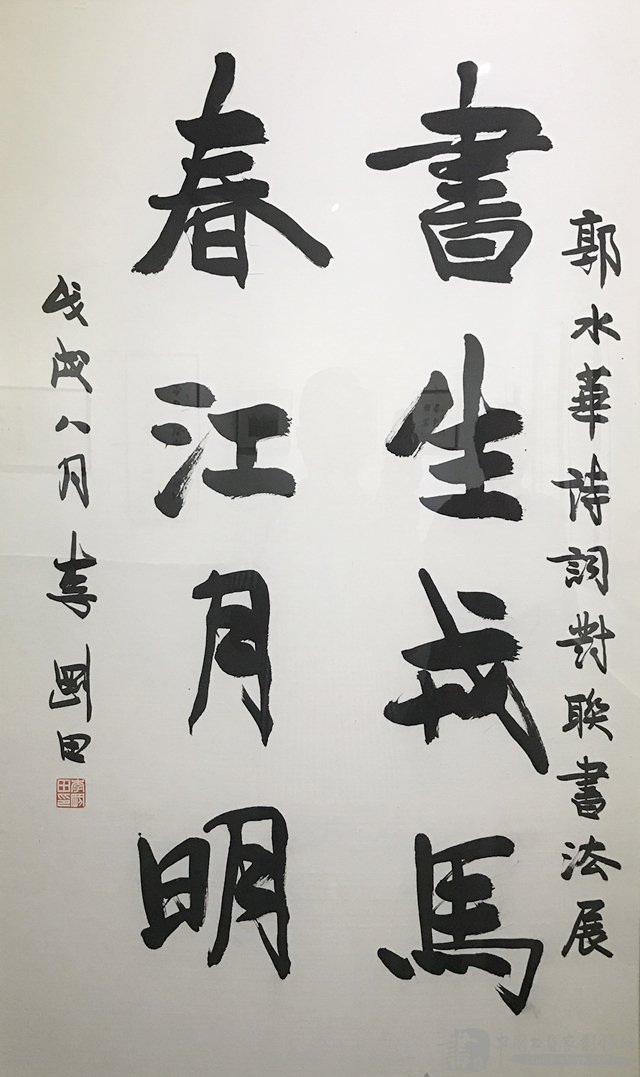 郭水華詩詞對聯書法展
書生戎馬
春江月明
戊戌八月李剛田